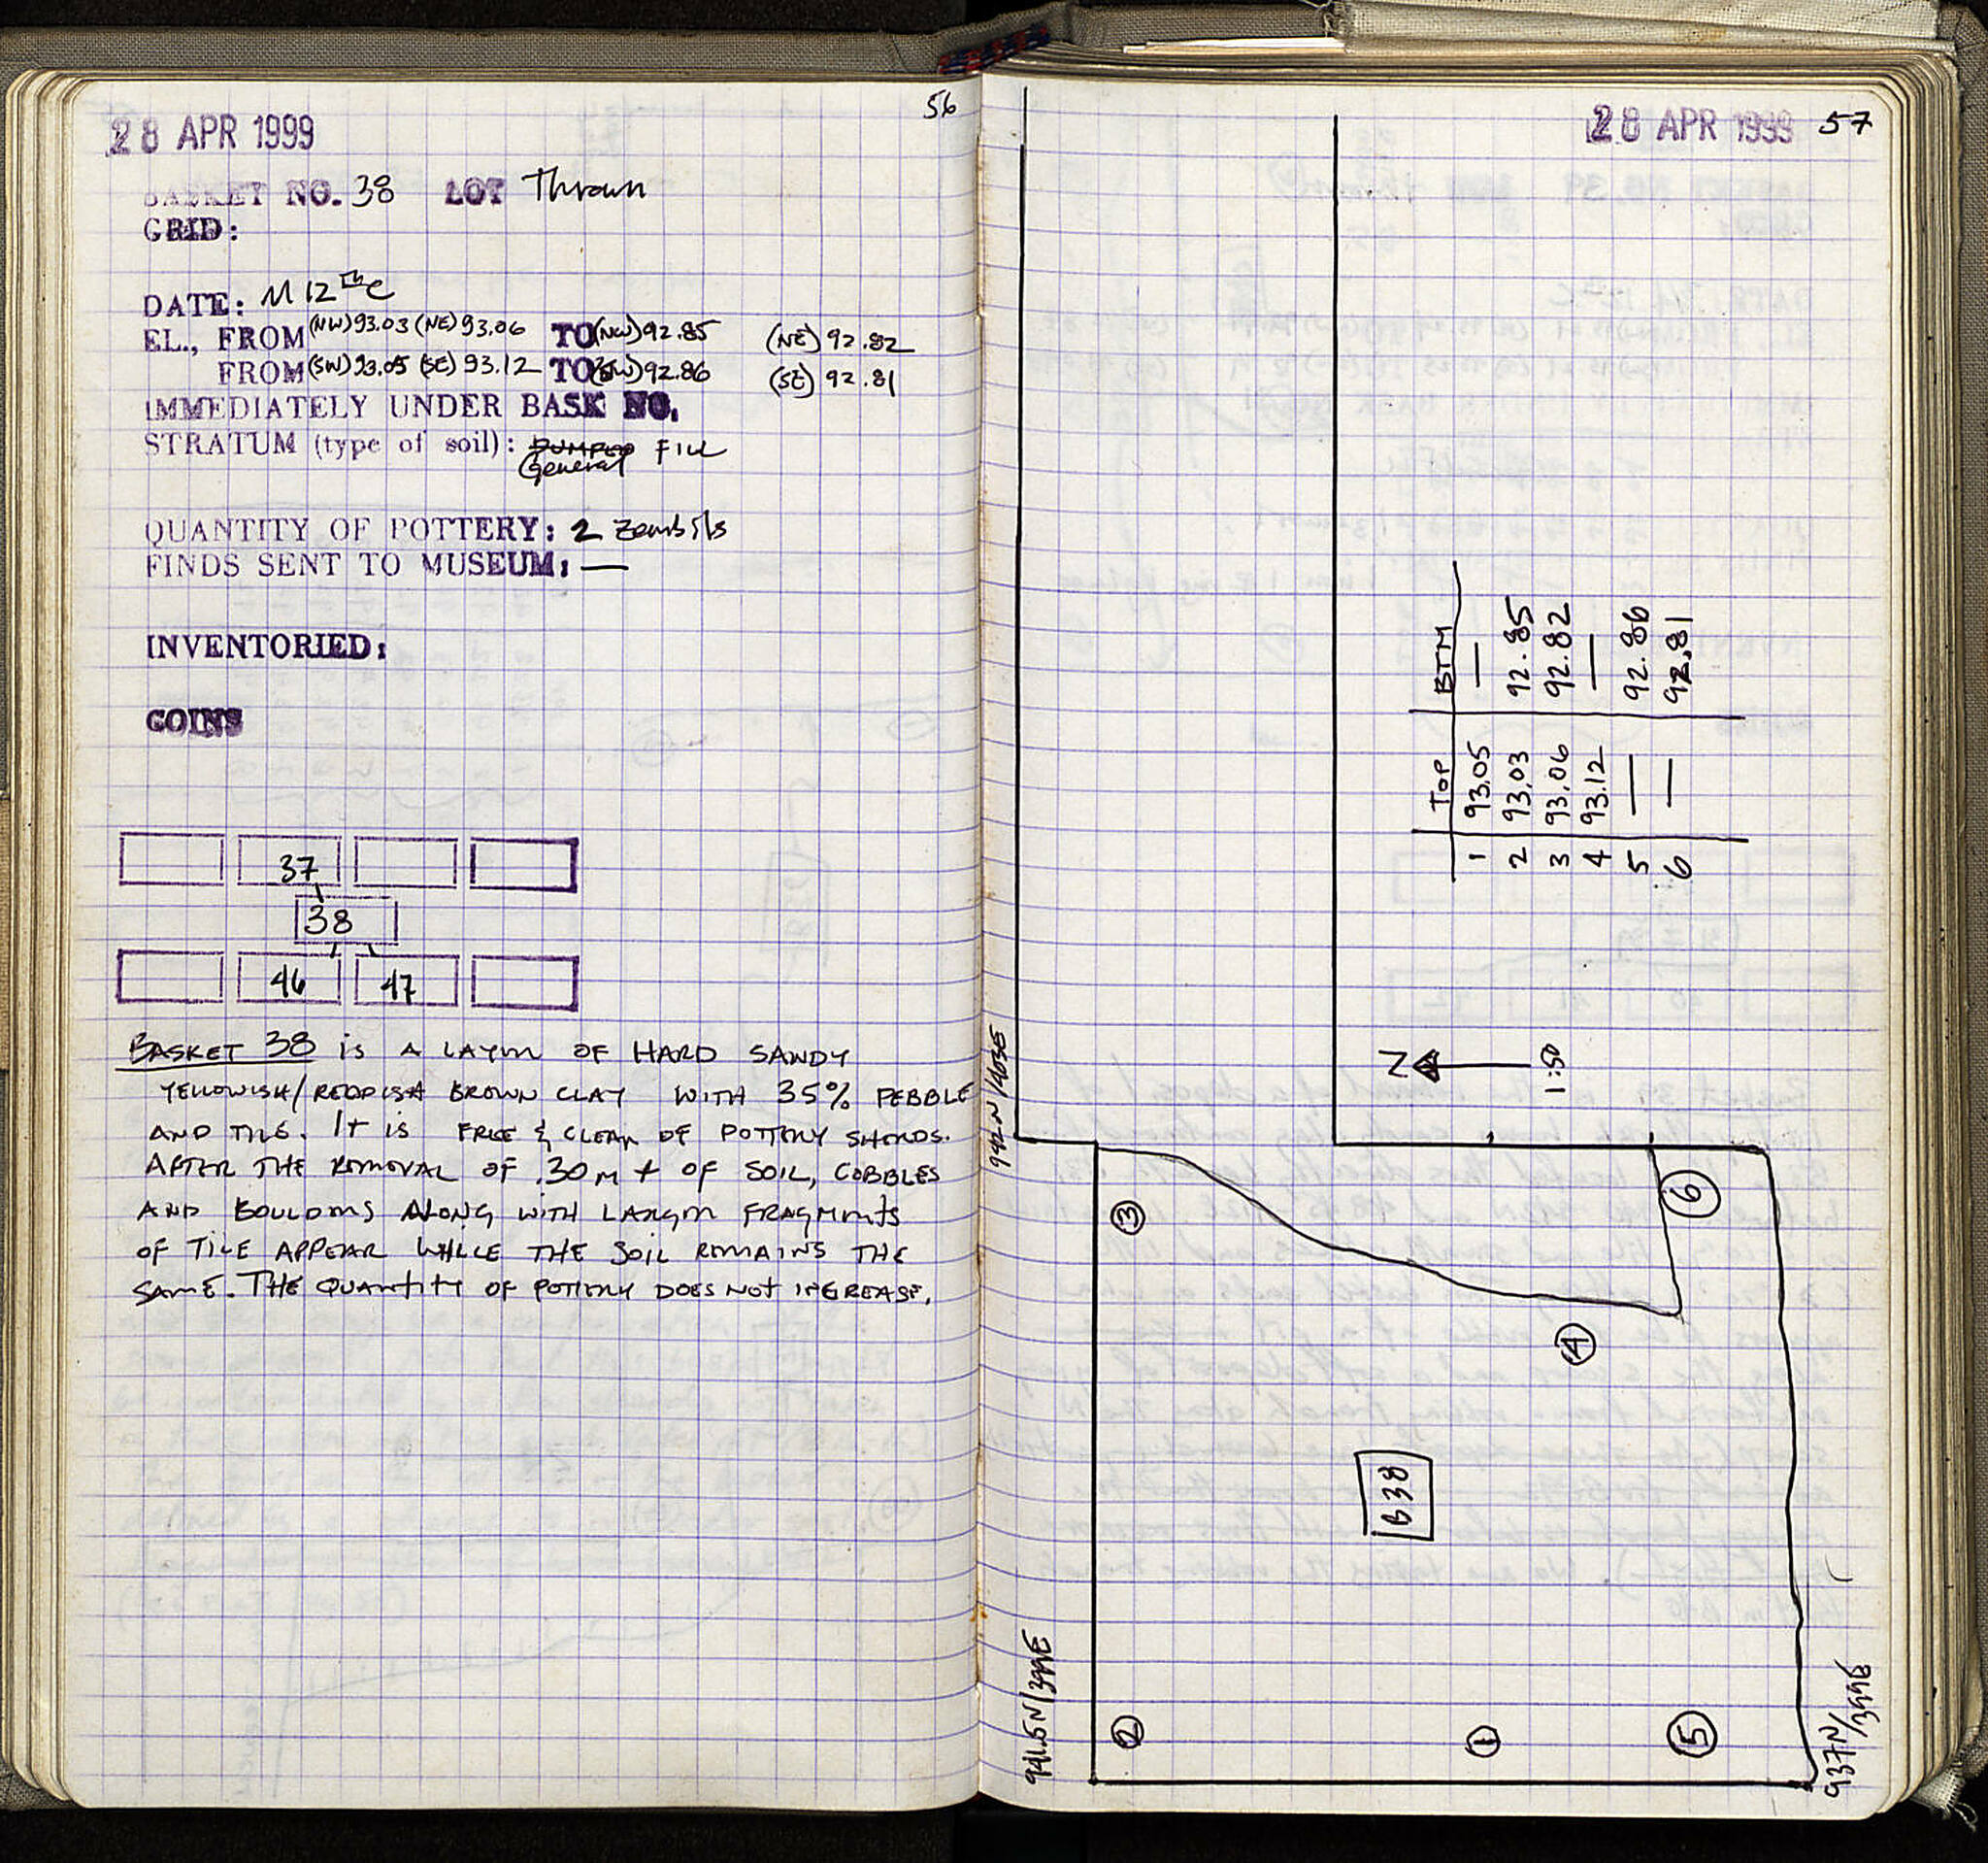 56
28 APR 1999
BASKET NO. 38 LOT Thrown
GRID:
DATE: M 12th C
EL., FROM (NW) 93.03 (NE) 93.06 TO (NW) 92.85 (NE) 92.82
FROM (SW) 93.05 (SE) 93.12 TO (SW) 92.86 (SE) 92.81
IMMEDIATELY UNDER BASK NO.
STRATUM (type of soil): DUMPED FILL
General
QUANTITY OF POTTERY: 2 zembils
FINDS SENT TO MUSEUM: —
INVENTORIED:
COINS
37
38
46 47
BASKET 38 IS A LAYER OF HARD SANDY
YELLOWISH/REDDISH BROWN CLAY WITH 35% PEBBLE
AND TILE. IT IS FREE & CLEAN OF POTTERY SHERDS.
AFTER THE REMOVAL OF .30 M + OF SOIL, COBBLES
AND BOULDERS ALONG WITH LARGER FRAGMENTS
OF TILE APPEAR WHILE THE SOIL REMAINS THE
SAME. THE QUANTITY OF POTTERY DOES NOT INCREASE.
28 APR 1999 57
TOP BTM
1 93.05 —
2 93.03 92.85
3 93.06 92.82
4 93.12 —
5 — 92.86
6 — 92.81
N
1:50
942N/403E
3
6
4
B38
2
1
5
941.5N/399E
937N/
399E